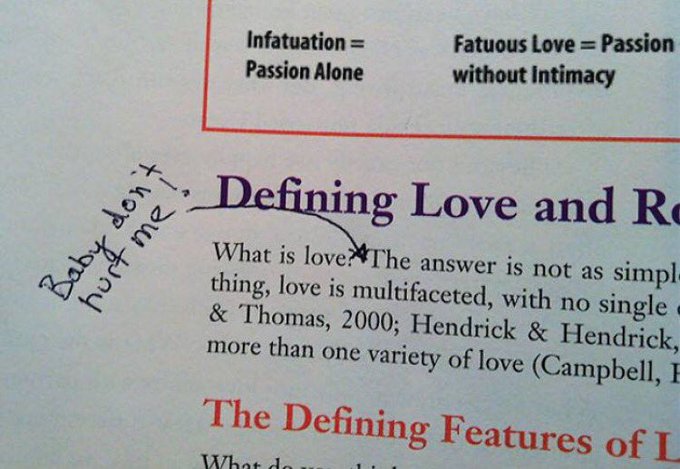 Infatuation =
Passion Alone
Fatuous Love = Passion
without Intimacy
Baby don't
hurt me!
Defining Love and Ro
What is love? The answer is not as simpl
thing, love is multifaceted, with no single
& Thomas, 2000; Hendrick & Hendrick,
more than one variety of love (Campbell,
The Defining Features of L
What do